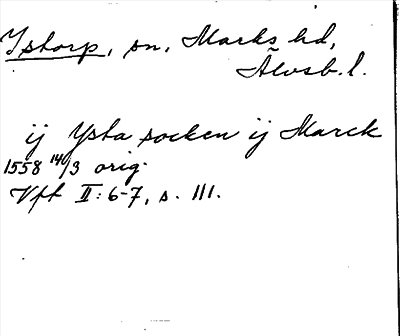 Istorp, sn, Marks hd,
Älvsb. l.
ij Ysta socken ij Marck
1558 14/3 orig.
VFT II: 6-7, s. 111.